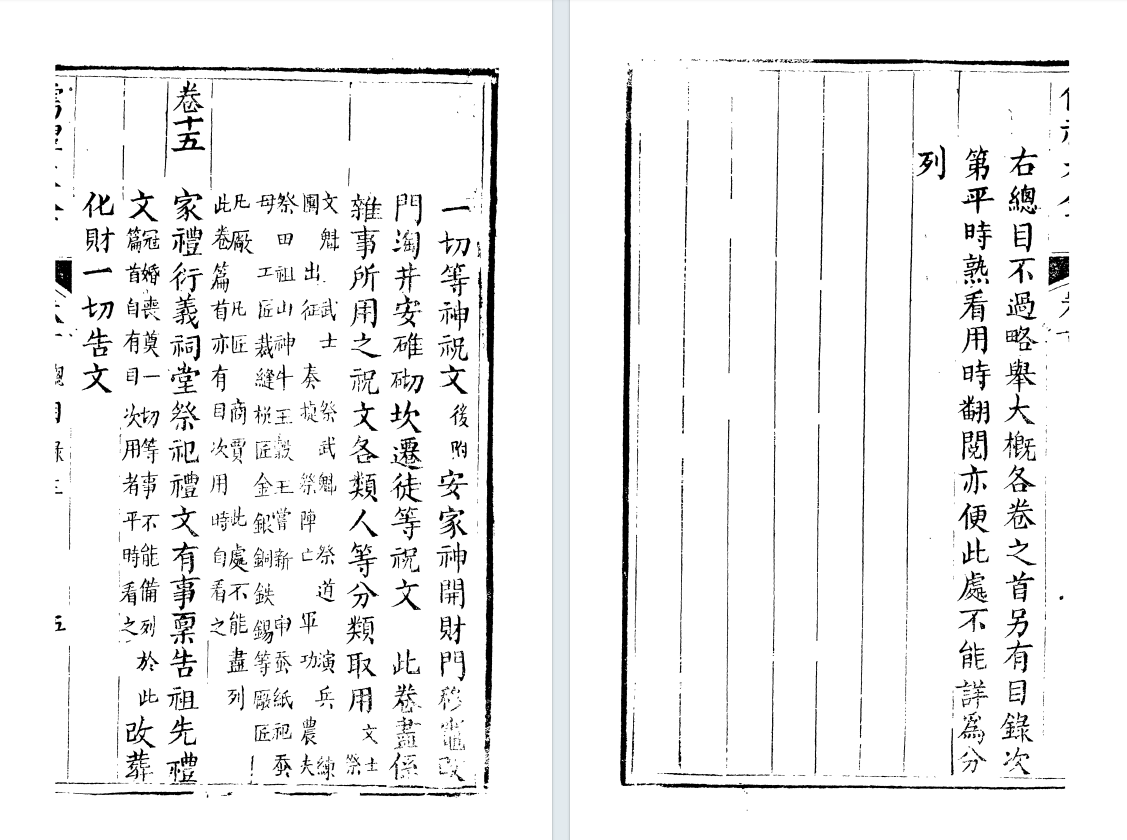 一切等神祝文後附安家神開財門移竈改
門淘井安碓砌坎遷徒等祝文 此卷盡係
雜事所用之祝文各類人等分類取用 文士祭
文魁 武士 祭武魁 祭道 演兵 練
團出征 奏旋 祭陣亡 軍功 農夫
祭田祖山神牛王穀王嘗新 申蚕紙祀蚕
母 工匠裁縫 匠金銀銅鉄錫等厰匠
凡厰凡匠 商賈 此處不能盡列
此卷篇首亦有目次用時自看之
卷十五 家禮衍義祠堂祭祀禮文有事稟告祖先禮
文 冠婚喪奠一切等事不能備列於此
篇首自有目次用者平時看之 改葬
化財一切告文
目 五
右總目不過略舉大概各卷之首另有目錄次
第平時熟看用時翻閱亦便此處不能詳爲分
列